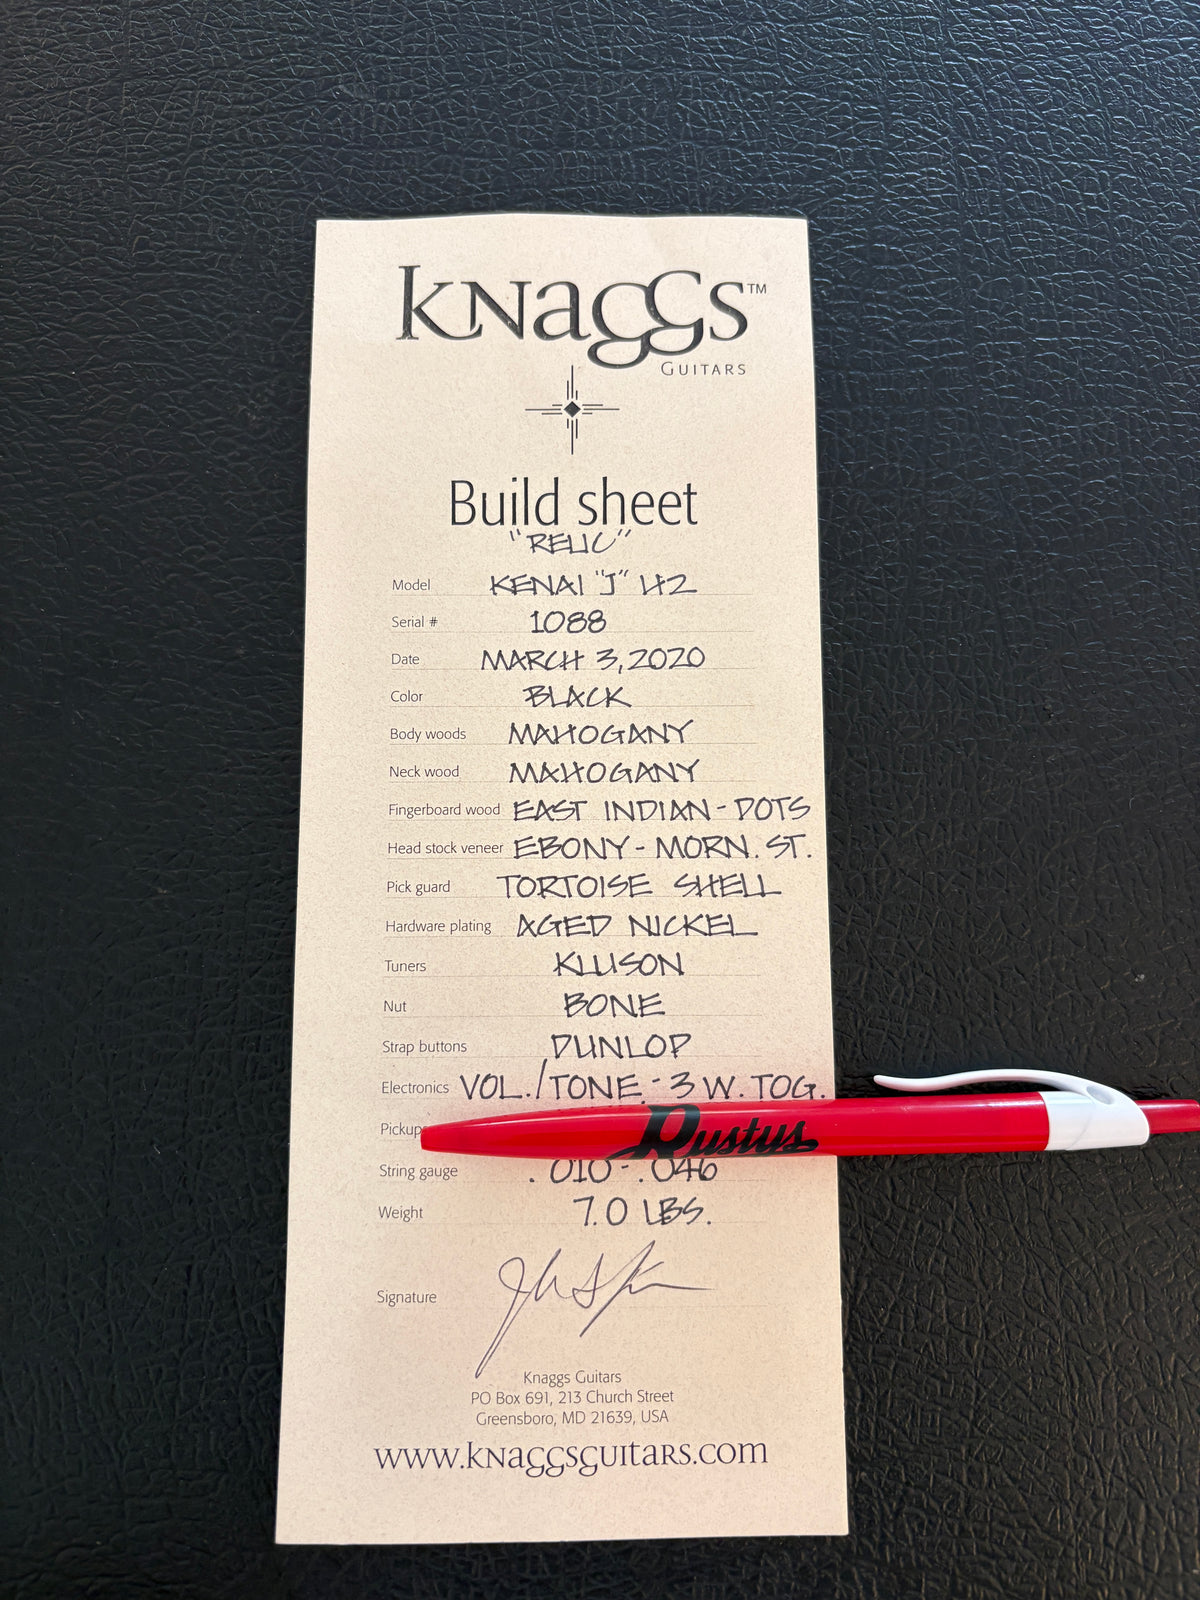 Knaggs™
Guitars
Build sheet
"RELIC"
Model KENAI "J" H2
Serial # 1088
Date MARCH 3, 2020
Color BLACK
Body woods MAHOGANY
Neck wood MAHOGANY
Fingerboard wood EAST INDIAN - DOTS
Head stock veneer EBONY - MORN. ST.
Pick guard TORTOISE SHELL
Hardware plating AGED NICKEL
Tuners KLUSON
Nut BONE
Strap buttons DUNLOP
Electronics VOL./TONE - 3 W. TOG.
Pickup
Rustys
String gauge .010 - .046
Weight 7.0 LBS.
Signature
Knaggs Guitars
PO Box 691, 213 Church Street
Greensboro, MD 21639, USA
www.knaggsguitars.com